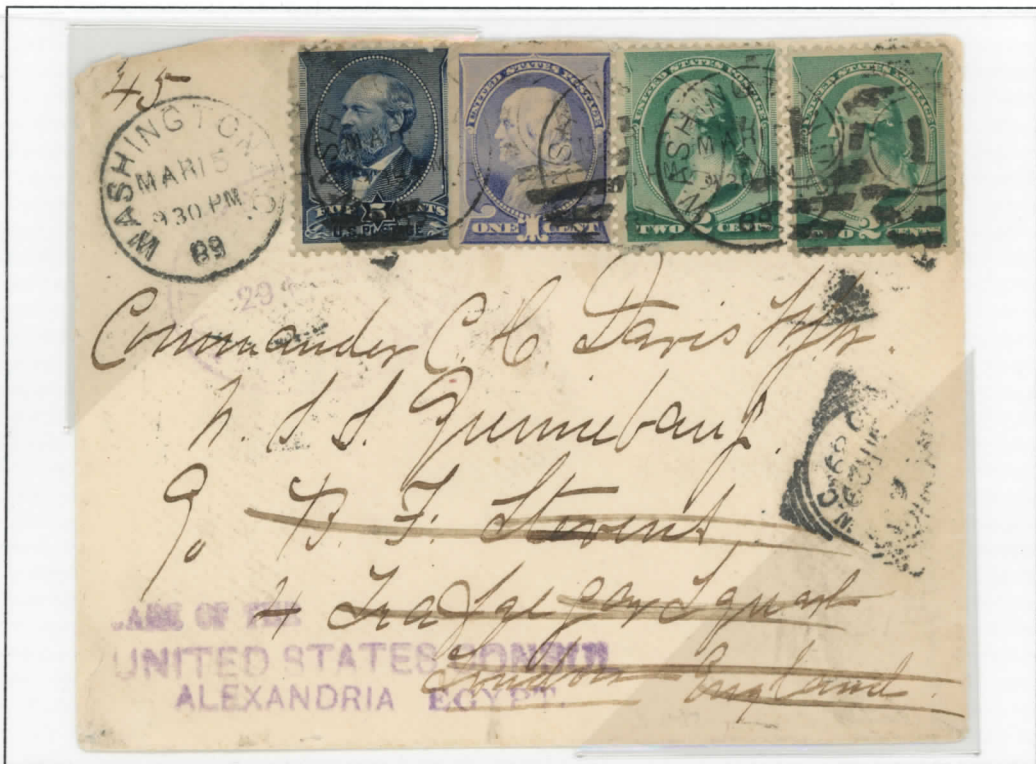 45
WASHINGTON
MAR 15
9 30 PM
89
UNITED STATES POSTAGE
UNITED STATES POSTAGE
5 CENTS
ONE CENT
TWO 2 CENTS
2
29
Commander C. H. Davis
U. S. S. Quinnebaug.
c/o B. F. Stevens,
4 Trafalgar Square
London England.
CARE OF THE
UNITED STATES CONSUL
ALEXANDRIA EGYPT.